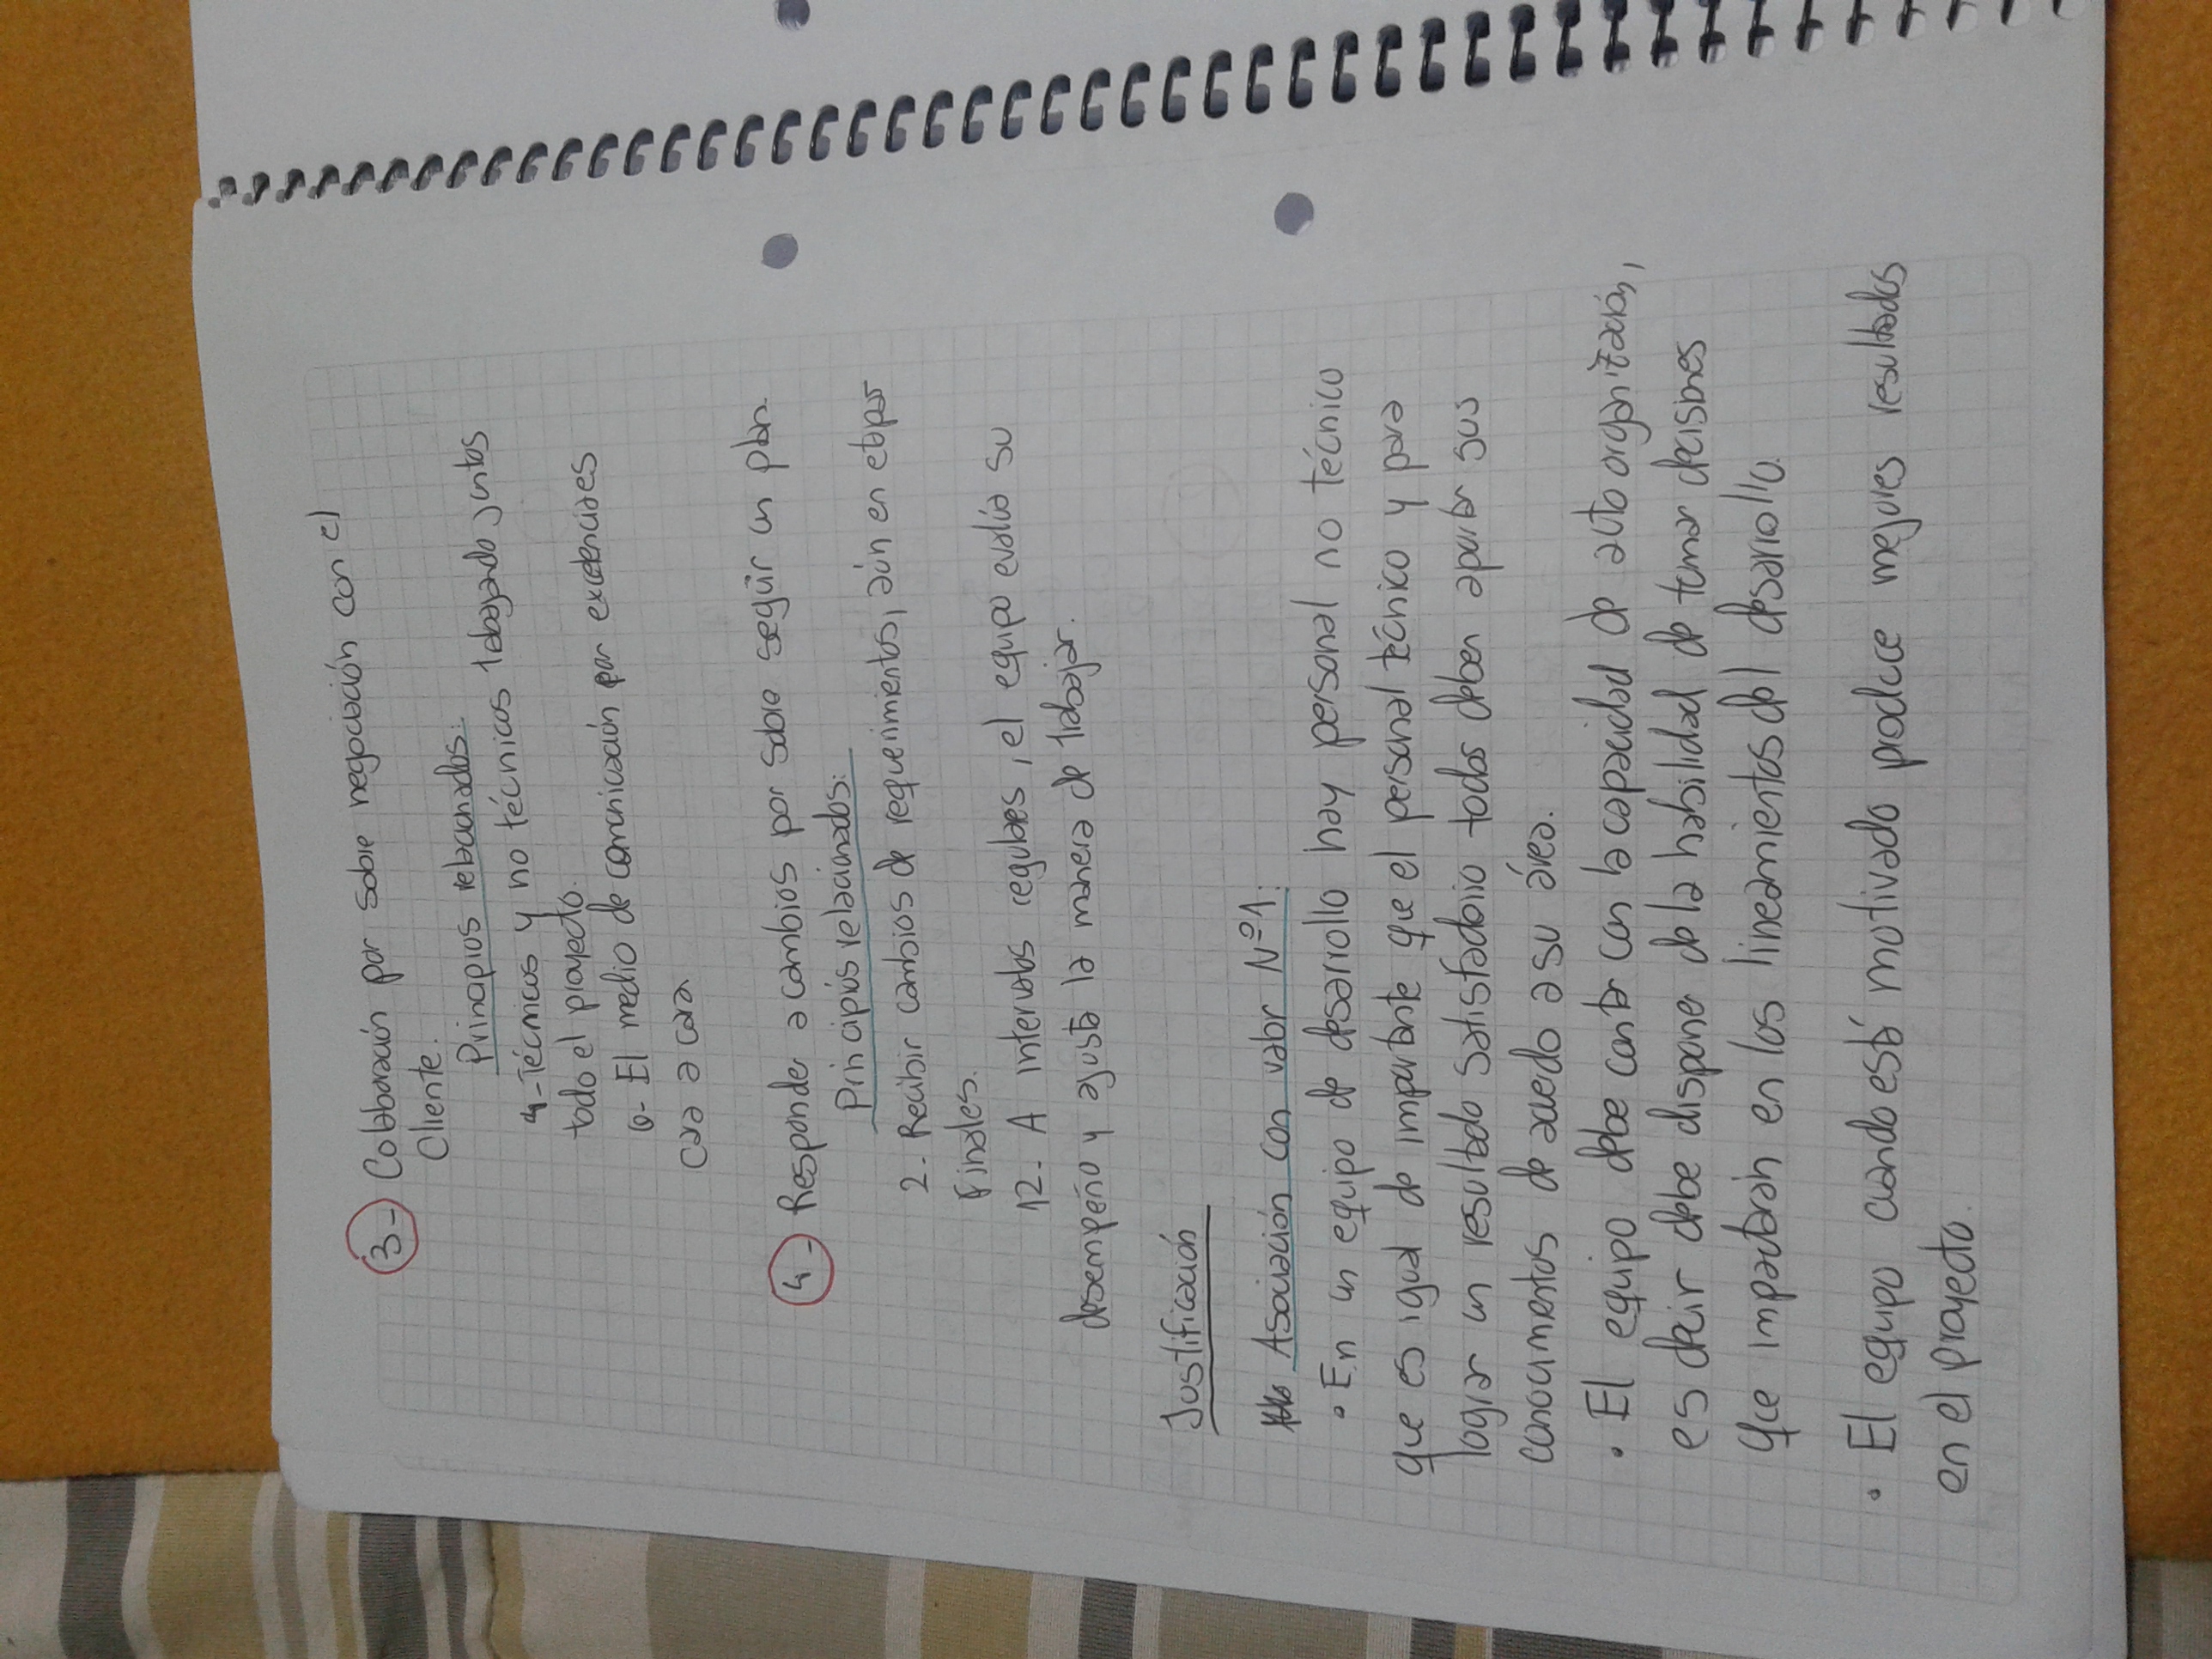 3- Colaboración por sobre negociación con el
Cliente.
Principios relacionados:
4-Técnicos y no técnicos trabajando juntos
todo el proyecto.
6- El medio de comunicación por excelencia es
cara a cara
4- Responder a cambios por sobre seguir un plan.
Principios relacionados:
2. Recibir cambios de requerimientos, aún en etapas
Finales.
12. A intervalos regulares, el equipo evalúa su
desempeño y ajusta la manera de trabajar.
Justificación
Asociación con valor Nº1:
• En un equipo de desarrollo hay personal no técnico
que es igual de importante que el personal técnico y para
lograr un resultado satisfactorio todos deben aportar sus
conocimientos de acuerdo a su área.
• El equipo debe contar con la capacidad de auto organización,
es decir debe disponer de la habilidad de tomar decisiones
que impactarán en los lineamientos del desarrollo.
• El equipo cuando está motivado produce mejores resultados
en el proyecto.